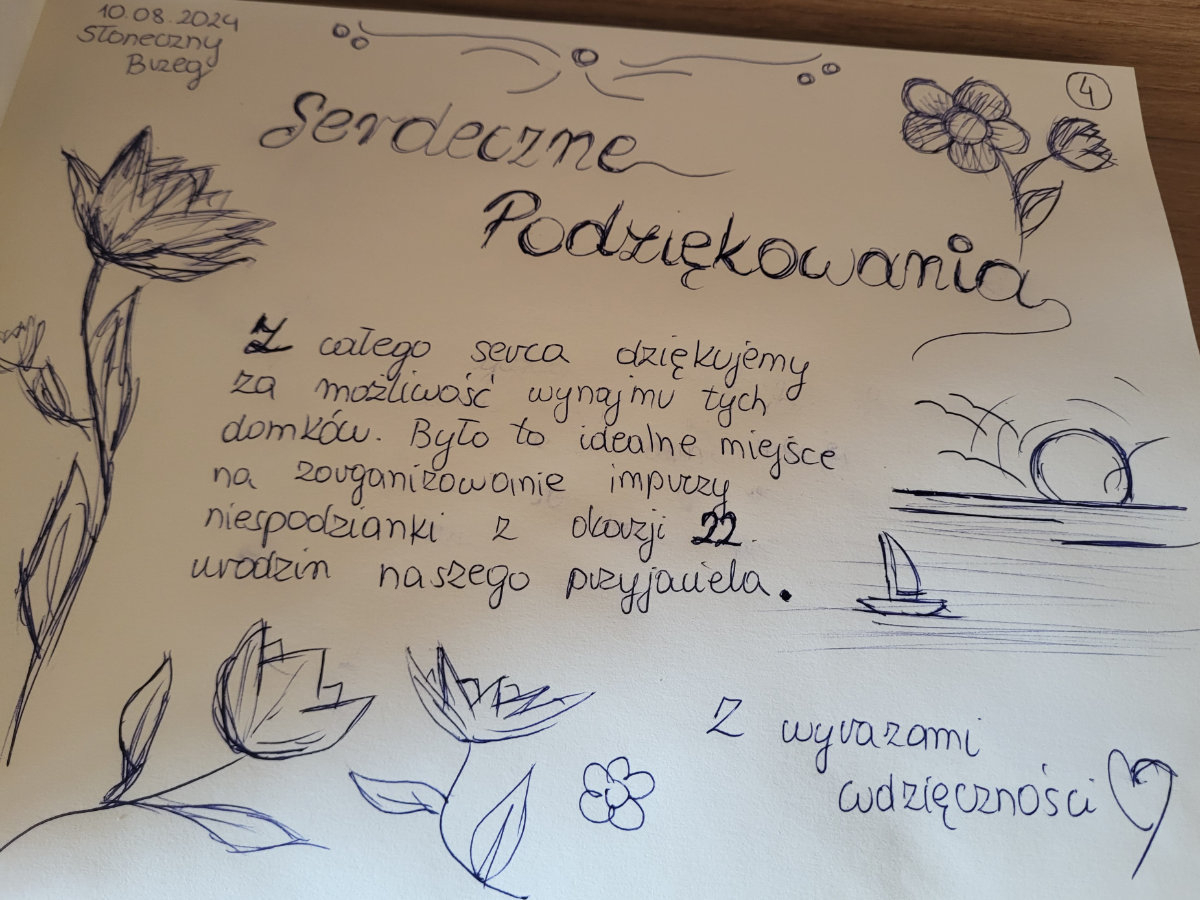 10.08.2024
Słoneczny
Brzeg
4
Serdeczne
Podziękowania
Z całego serca dziękujemy
za możliwość wynajmu tych
domków. Było to idealne miejsce
na zorganizowanie imprezy
niespodzianki z okazji 22
urodzin naszego przyjaciela.
Z wyrazami
wdzięczności